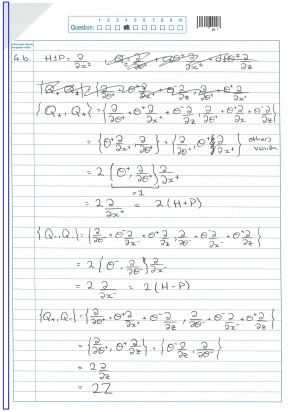 Question: 1 2 3 4 5 6 7 8 9 10
4.b. H+P = ∂/∂x⁺
{Q₊, Q₊} = {∂/∂θ⁺ + θ⁺∂/∂x⁺ + θ⁻∂/∂z, ∂/∂θ⁺ + θ⁺∂/∂x⁺ + θ⁻∂/∂z}
= {θ⁺∂/∂x⁺, ∂/∂θ⁺} + {∂/∂θ⁺, θ⁺∂/∂x⁺} others vanish
= 2{θ⁺, ∂/∂θ⁺}∂/∂x⁺
=1
= 2∂/∂x⁺ = 2(H+P)
{Q₋, Q₋} = {∂/∂θ⁻ + θ⁻∂/∂x⁻ + θ⁺∂/∂z, ∂/∂θ⁻ + θ⁻∂/∂x⁻ + θ⁺∂/∂z}
= 2{θ⁻, ∂/∂θ⁻}∂/∂x⁻
= 2∂/∂x⁻ = 2(H-P)
{Q₊, Q₋} = {∂/∂θ⁺ + θ⁺∂/∂x⁺ + θ⁻∂/∂z, ∂/∂θ⁻ + θ⁻∂/∂x⁻ + θ⁺∂/∂z}
= {∂/∂θ⁺, θ⁺∂/∂z} + {θ⁻∂/∂z, ∂/∂θ⁻}
= 2∂/∂z
= 2Z